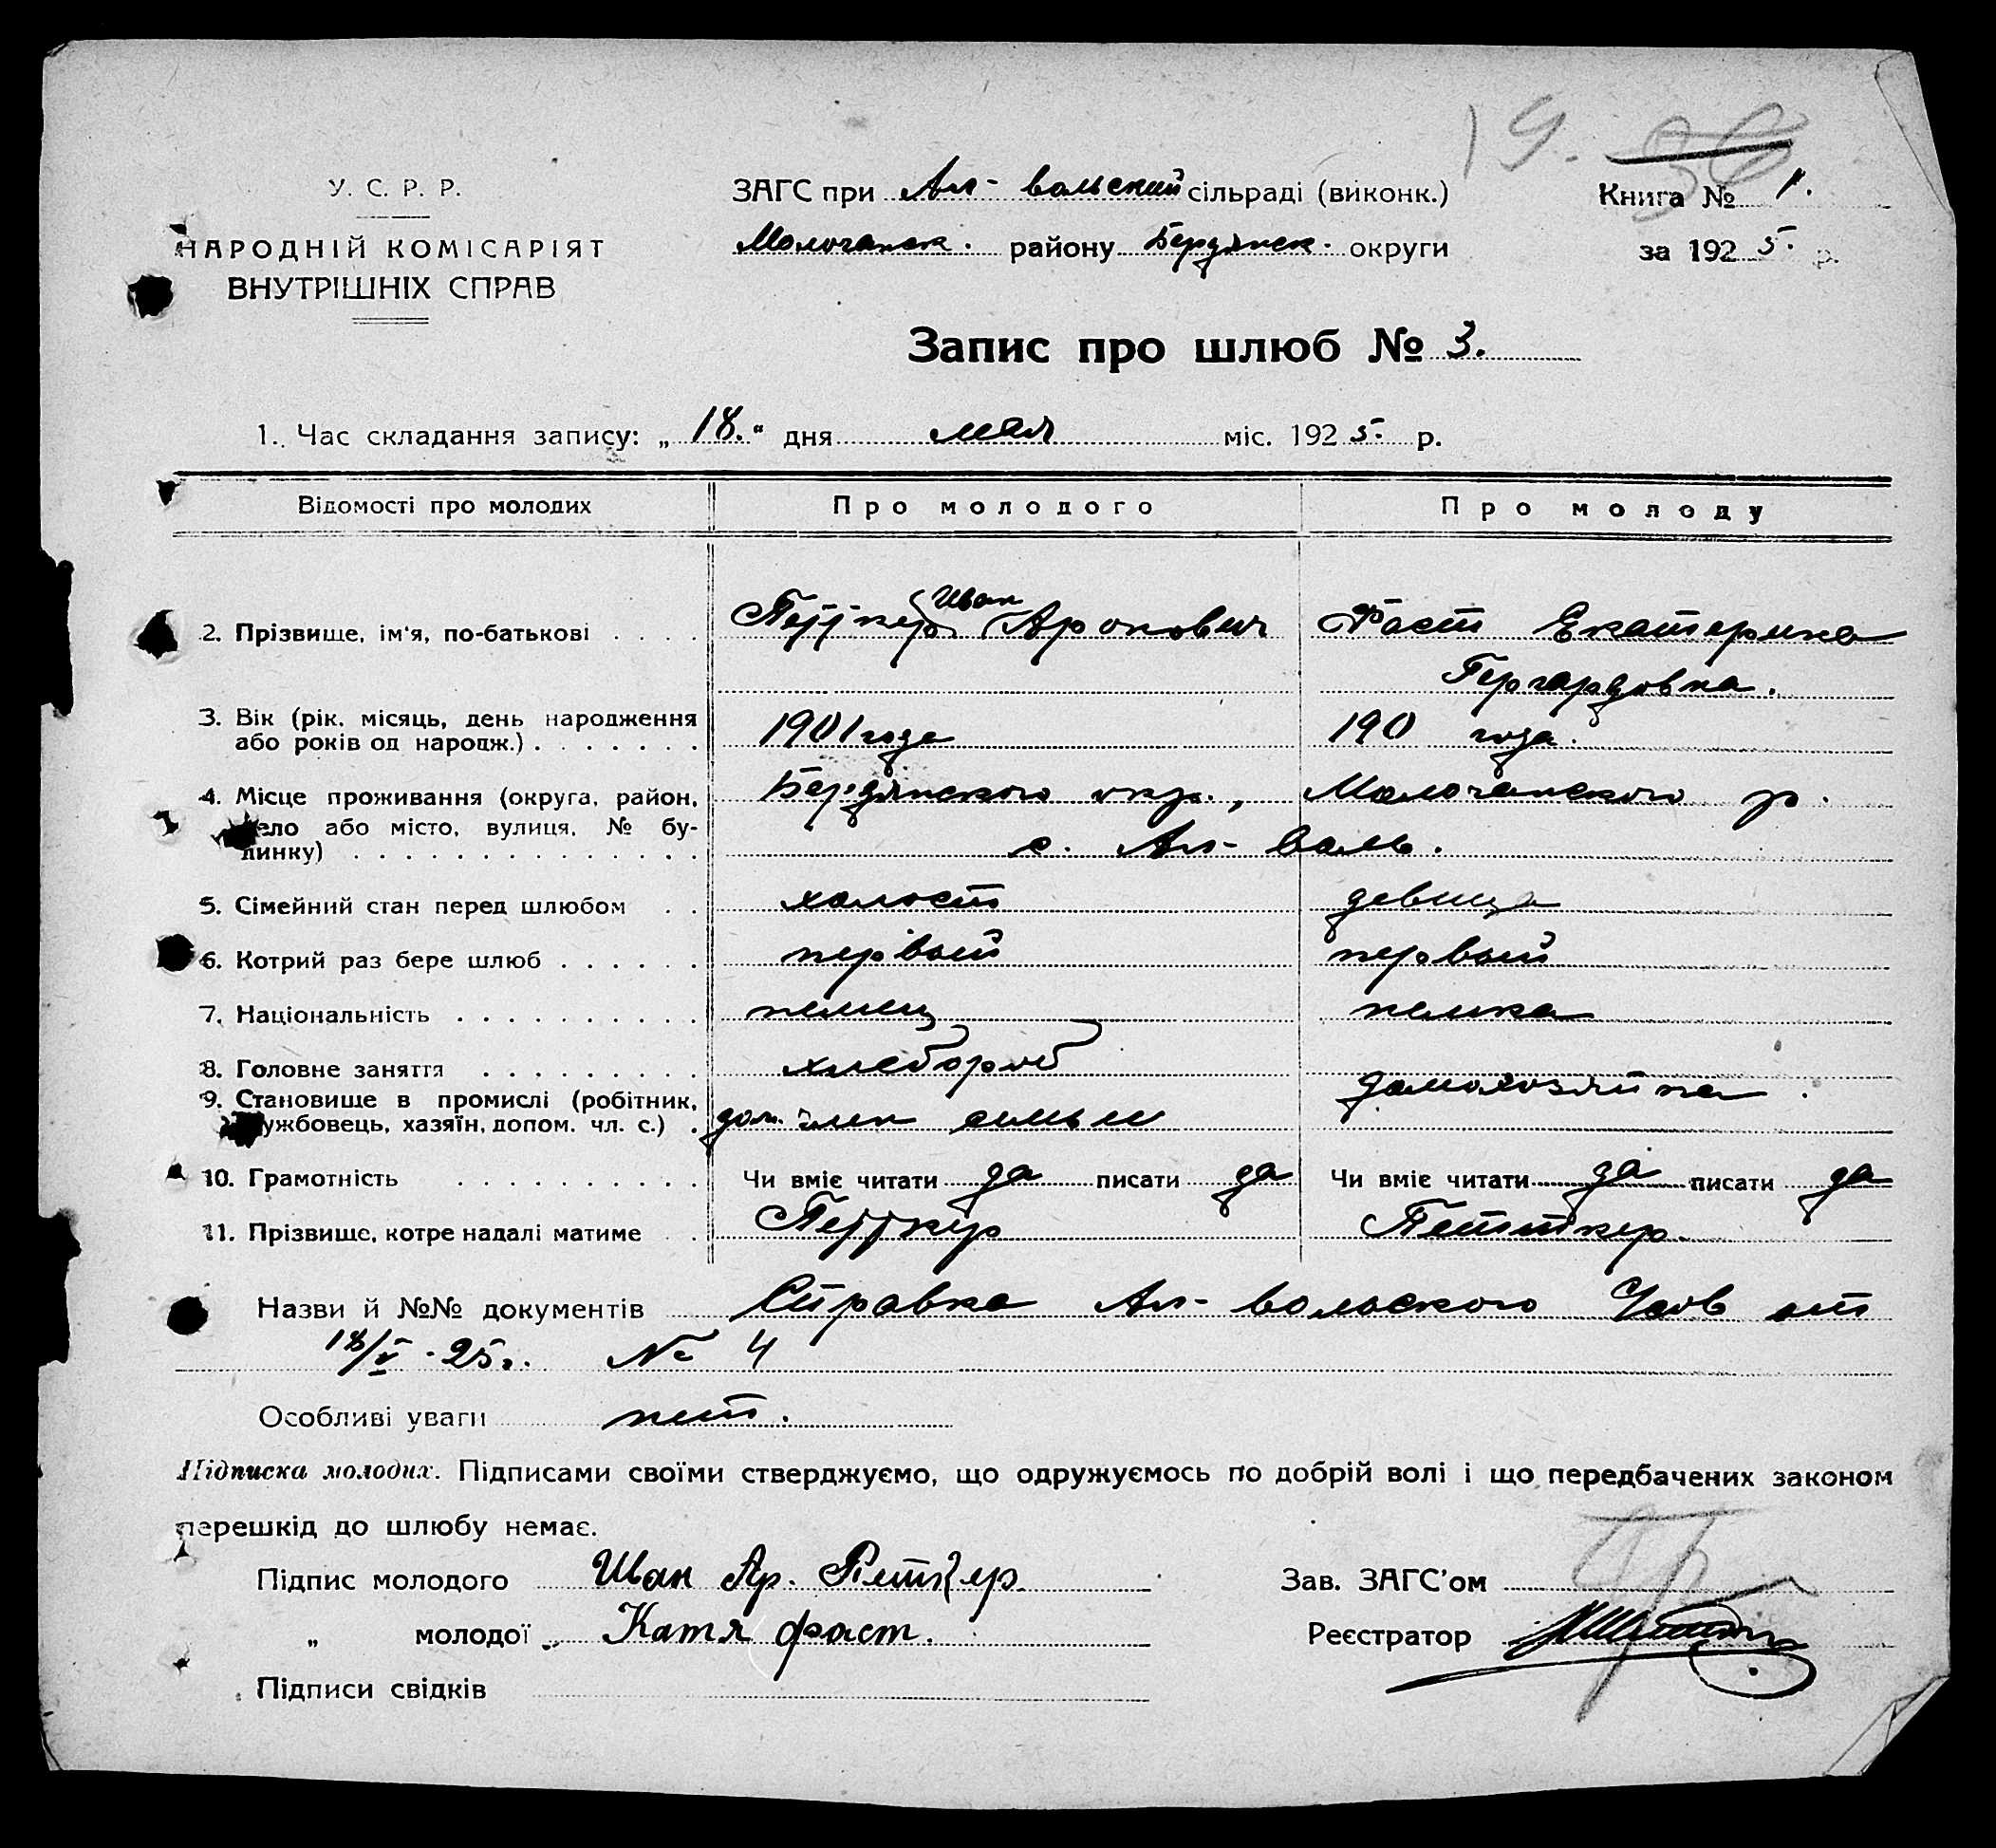 19. 36
У. С. Р. Р.
НАРОДНІЙ КОМІСАРІЯТ
ВНУТРІШНІХ СПРАВ
ЗАГС при Ал-вольский сільраді (виконк.)
Молочанск. району Бердянск. округи
Книга № 1.
за 1925. р.
Запис про шлюб № 3.
1. Час складання запису: „18.“ дня мая міс. 1925. р.
Відомості про молодих Про молодого Про молоду
Иван
2. Прізвище, ім'я, по-батькові . . . . Петкер Аронович Фаст Екатерина
Гергардовна.
3. Вік (рік, місяць, день народження
або років од народж.) . . . . . . . 1901 года 190 года.
4. Місце проживання (округа, район, Бердянского окр., Молочанского р.
село або місто, вулиця, № бу-
динку) . . . . . . . . . . . . . . с. Ал-валь.
5. Сімейний стан перед шлюбом . . холост девица
6. Котрий раз бере шлюб . . . . . . первый первый
7. Національність . . . . . . . . . . немец немка
8. Головне заняття . . . . . . . . . хлебороб домохозяйка.
9. Становище в промислі (робітник,
службовець, хазяїн, допом. чл. с.) . дом. член семьи
10. Грамотність . . . . . . . . . . Чи вміє читати да писати да Чи вміє читати да писати да
11. Прізвище, котре надалі матиме . . Петкер Петткер.
Назви й №№ документів Справка Ал-вольского от
18/V-25г. № 4
Особливі уваги нет.
Підписка молодих. Підписами своїми стверджуємо, що одружуємось по добрій волі і що передбачених законом
перешкід до шлюбу немає.
Підпис молодого Иван Ар. Петкер
Зав. ЗАГС'ом
„ молодої Катя Фаст.
Реєстратор
Підписи свідків